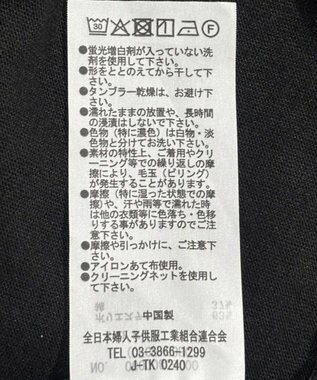 30 1 F
●蛍光増白剤が入っていない洗
剤を使用して下さい。
●形をととのえてから干して下
さい。
●タンブラー乾燥は、お避け下
さい。
●濡れたままの放置や、長時間
の浸漬はしないで下さい。
●色物（特に濃色）は白物・淡
色物と分けてお洗い下さい。
●素材の特性上、ご着用やクリ
ーニング等での繰り返しの摩
擦により、毛玉（ピリング）
が発生することがあります。
●摩擦（特に湿った状態での摩
擦）や、汗や雨等で濡れた時
は他の衣類等に色落ち・色移
りする事がありますのでご注
意下さい。
●摩擦や引っかけに、ご注意下
さい。
●アイロンあて布使用。
●クリーニングネットを使用し
て下さい。
中国製
全日本婦人子供服工業組合連合会
TEL 03-3866-1299
J-TK 0240